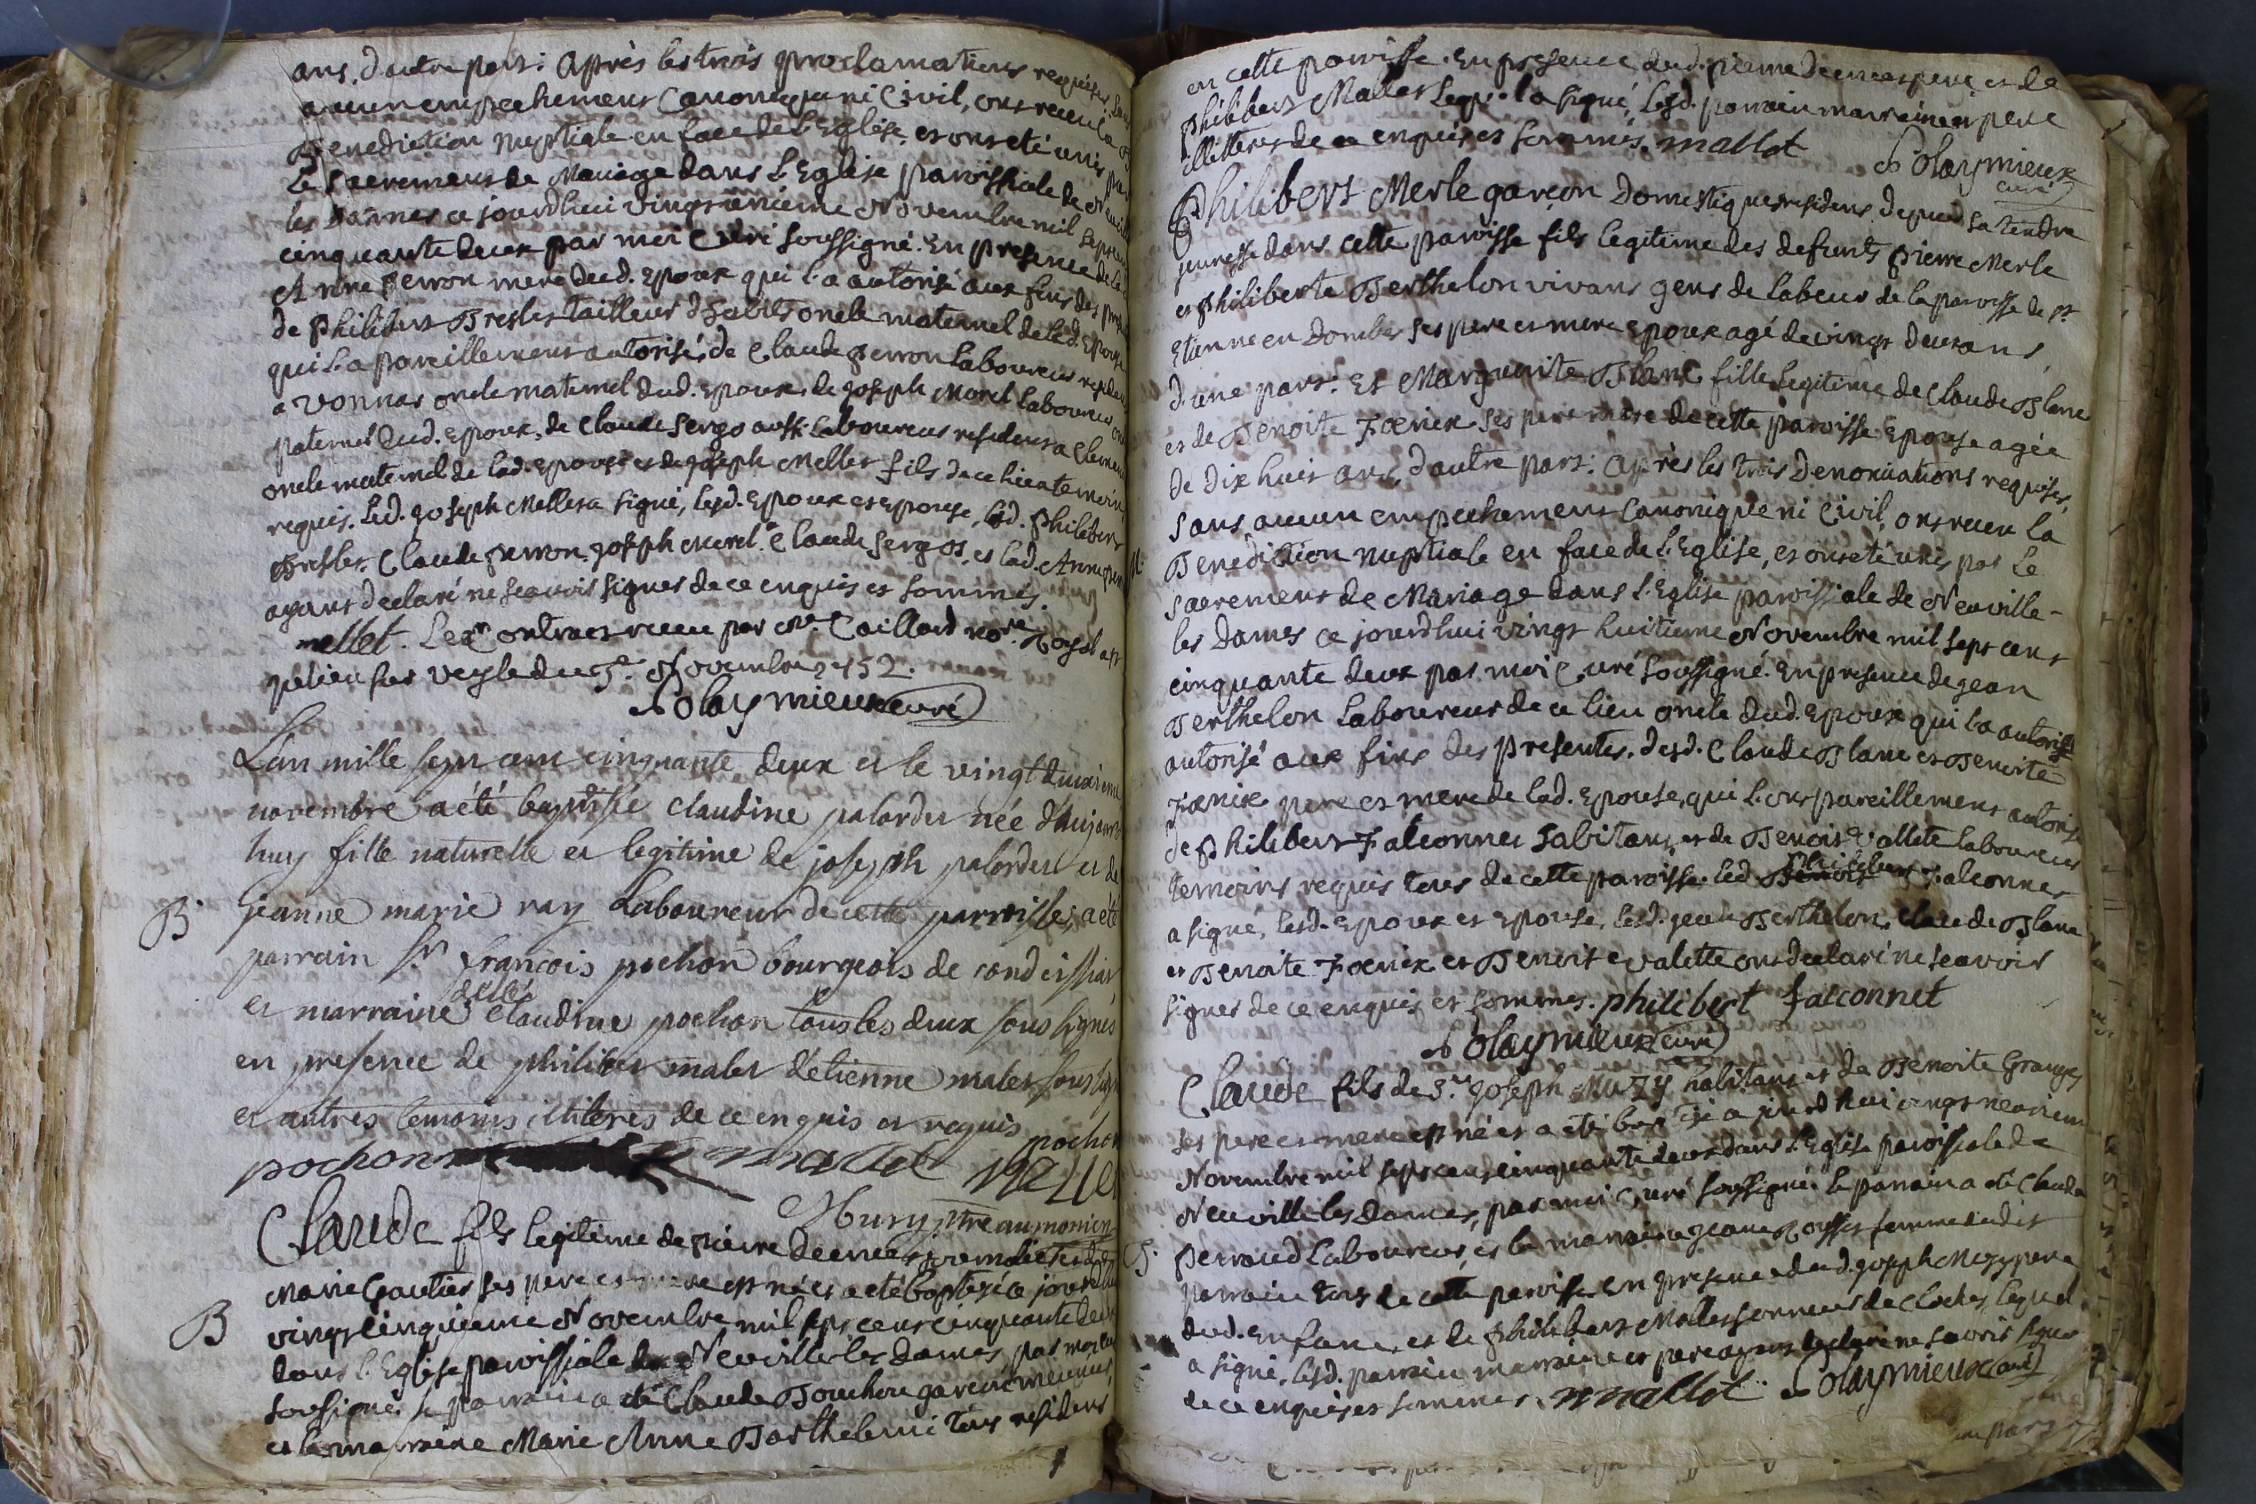 ans. d'autre part: Après les trois proclamations requises, sans
aucun empechement Canonique ni Civil, ont receu la
Benediction nuptiale en face de l'Eglise, et ont eté unis par
le sacrement de Mariage dans l'Eglise paroissiale de Neuville
les Dames ce jourdhui vingt unieme Novembre mil sept cent
cinquante deux par moi Curé soussigné. En presence de lad.
Anne perron mere dud. Epoux qui l'a autorisé aux fins des presentes
de philibert Bresler tailleur d'habits oncle maternel de lad. Epouse
qui l'a pareillement autorisée, de Claude perron laboureur resident
a vonnas oncle maternel dud. Epoux, de joseph Morel laboureur oncle
paternel dud. Epoux, de Claude Sergo aussi laboureur resident a
oncle maternel de lad. Epouse et de joseph Mellet fils de ce lieu temoins
requis. Led. joseph Mellet a signé, lesd. Epoux et Epouse, led. philibert
Bresler, Claude perron, joseph Morel, Claude Sergo, et lad. Anne perron
ayant declaré ne scavoir signer de ce enquis et sommés.
mellet. Le contract receu par me. Caillard nore. Royal a st
julien sur veyle du 3e. Novembre 1752.
Polaymieux curé
L'an mille sept cent cinquante deux et le vingt deuxieme
novembre a été baptisée claudine palordet née d'aujour
huy fille naturelle et legitime de joseph palordet et de
B jeanne marie ray Laboureur de cette parroisse, a été
parrain sr françois pochon bourgeois de condeissiat
et marraine delle claudine pochon tous les deux sous signés
en presence de philibert malet d'etienne malet sous signé
et autres temoins illiterés de ce enquis et requis
pochon mallet pochon
hury ptre aumonier
Claude fils legitime de pierre et de
Marie Gautier ses pere et mere est né et a eté baptisé ce jourdhui
B vingt cinquieme Novembre mil sept cent cinquante deux
dans l'Eglise paroissiale de Neuville les Dames, par moi curé
soussigné. le parrain a eté Claude Bouchou garçon meunier,
et la marraine Marie Anne Barthelemi tous residens
en cette paroisse. En presence dud. pierre pere et de
philibert Mallet lequel a signé, lesd. parrain marraine et pere
illitteres de ce enquis et sommés. mallot Polaymieux
curé
Philibert Merle garçon Domestique resident depuis sa tendre
jeunesse dans cette paroisse fils legitime des defunts pierre Merle
et philiberte Berthelon vivans gens de labeur de la paroisse de st
Etienne en Dombes ses pere et mere Epoux agé de vingt deux ans,
d'une part: Et Marguerite Blanc fille legitime de Claude Blanc
et de Benoite Foenix ses pere et mere de cette paroisse Epouse agée
de dix huit ans, d'autre part: Après les trois Denonciations requises,
sans aucun empechement Canonique ni Civil, ont receu la
Benediction nuptiale en face de l'Eglise, et ont eté unis par le
sacrement de Mariage dans l'Eglise paroissiale de Neuville-
les Dames ce jourdhui vingt huitieme Novembre mil sept cent
cinquante deux par moi Curé soussigné. En presence de jean
Berthelon laboureur de ce lieu oncle dud. Epoux qui l'a autorisé
autorisé aux fins des presentes, desd. Claude Blanc et Benoite
Foenix pere et mere de lad. Epouse, qui l'ont pareillement autorisé
de philibert Falconnet habitant, et de Benoit Vallete laboureur
temoins requis tous de cette paroisse. led. philibert Falconnet
a signé, lesd. Epoux et Epouse, led. jean Berthelon, Claude Blanc
et Benoite Foenix et Benoit Valette ont declaré ne scavoir
signer de ce enquis et sommés. philibert falconnet
Polaymieux curé
Claude fils de sr joseph Muzy habitant et de Benoite Granger
ses pere et mere est né et a eté baptisé ajourdhui vingt neuvieme
Novembre mil sept cent cinquante deux dans l'Eglise paroissiale de
Neuville les Dames, par moi Curé soussigné le parrain a eté Claude
perraud laboureur, et la marraine jeane femme dudit
parrain tous de cette paroisse. En presence dud. joseph Muzy pere
dud. Enfant, et de philibert Mallet sonneur de cloches, lequel
a signé, lesd. parrain marraine et pere ayant declaré ne scavoir signer
de ce enquis et sommés. mallot Polaymieux curé